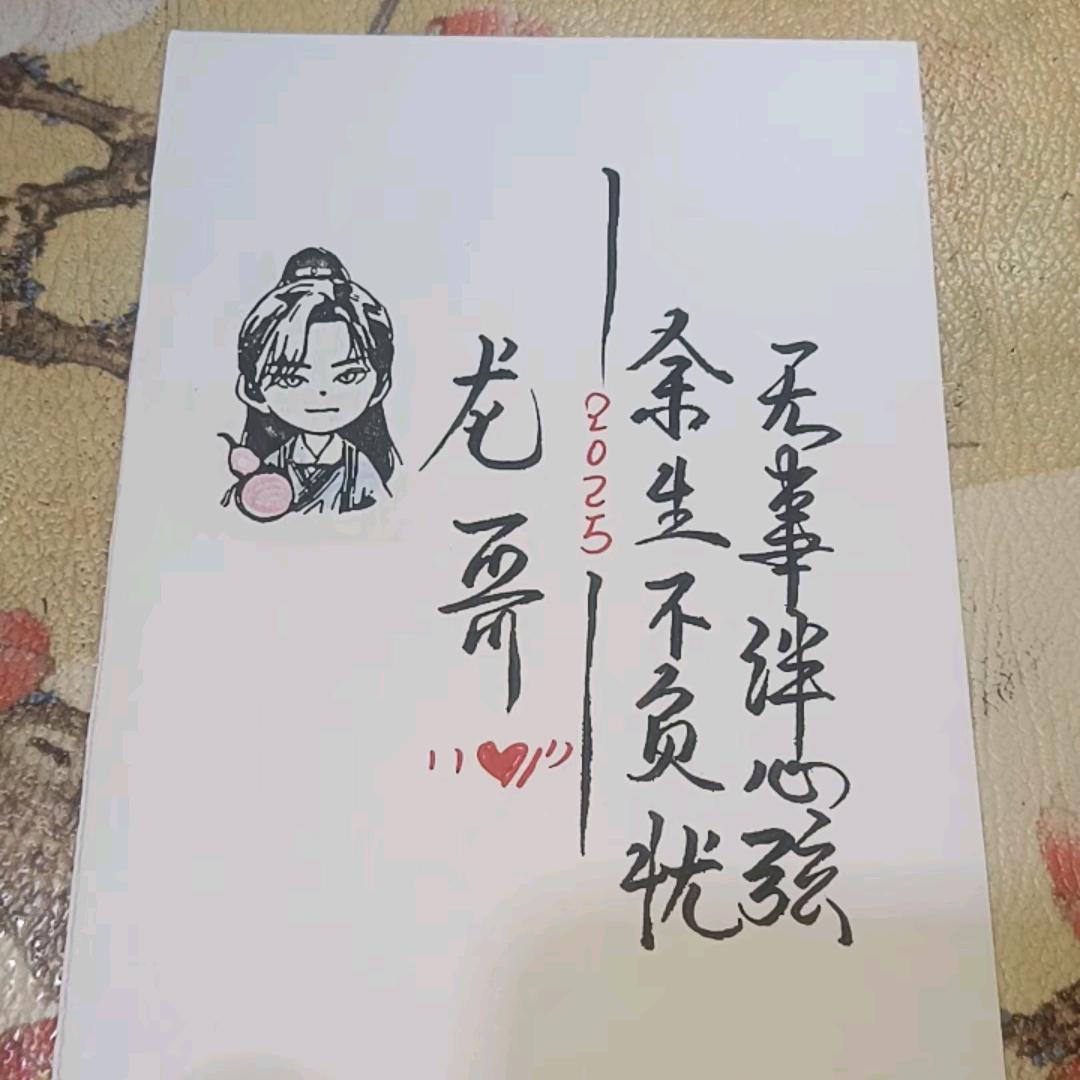 无事绊心弦
余生不负忧
2025
龙哥